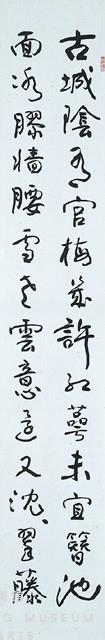 古城陰有官梅幾許紅萼未宜簪池
面冰膠牆腰雪老雲意還又沈沈翠藤
MUSEUM
ARTS